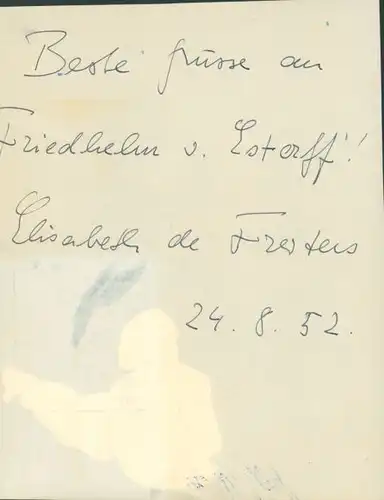 Beste grüsse an
Friedhelm v. Estorff!
Elisabeth de Freitas
24. 8. 52.